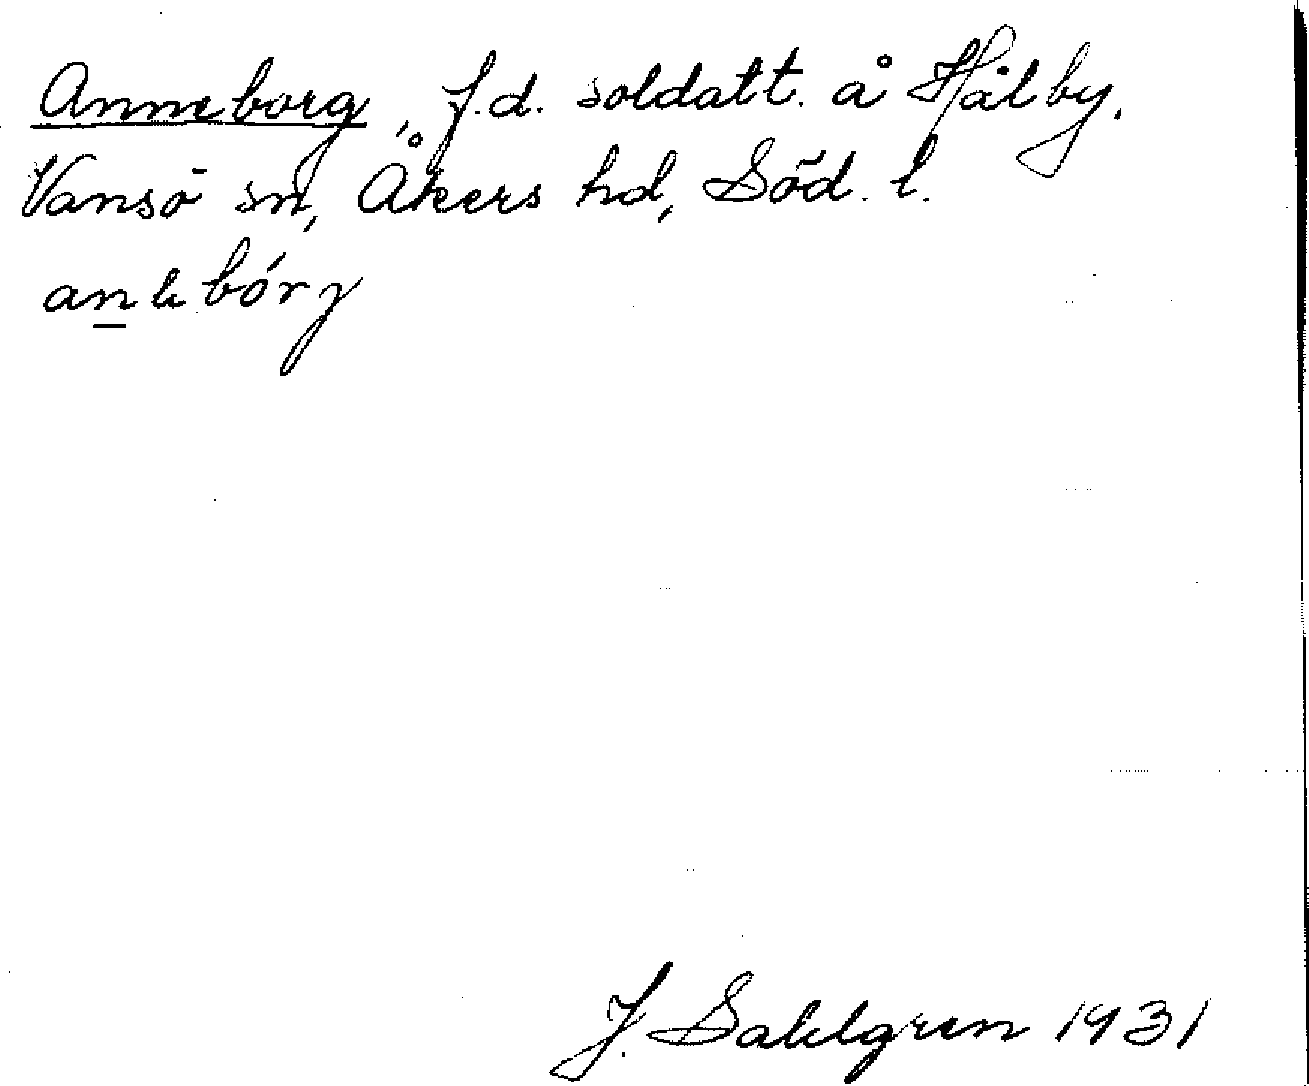 Anneborg, f.d. soldatt. å Hålby,
Vansö sn, Åkers hd, Söd. l.
J. Sahlgren 1931